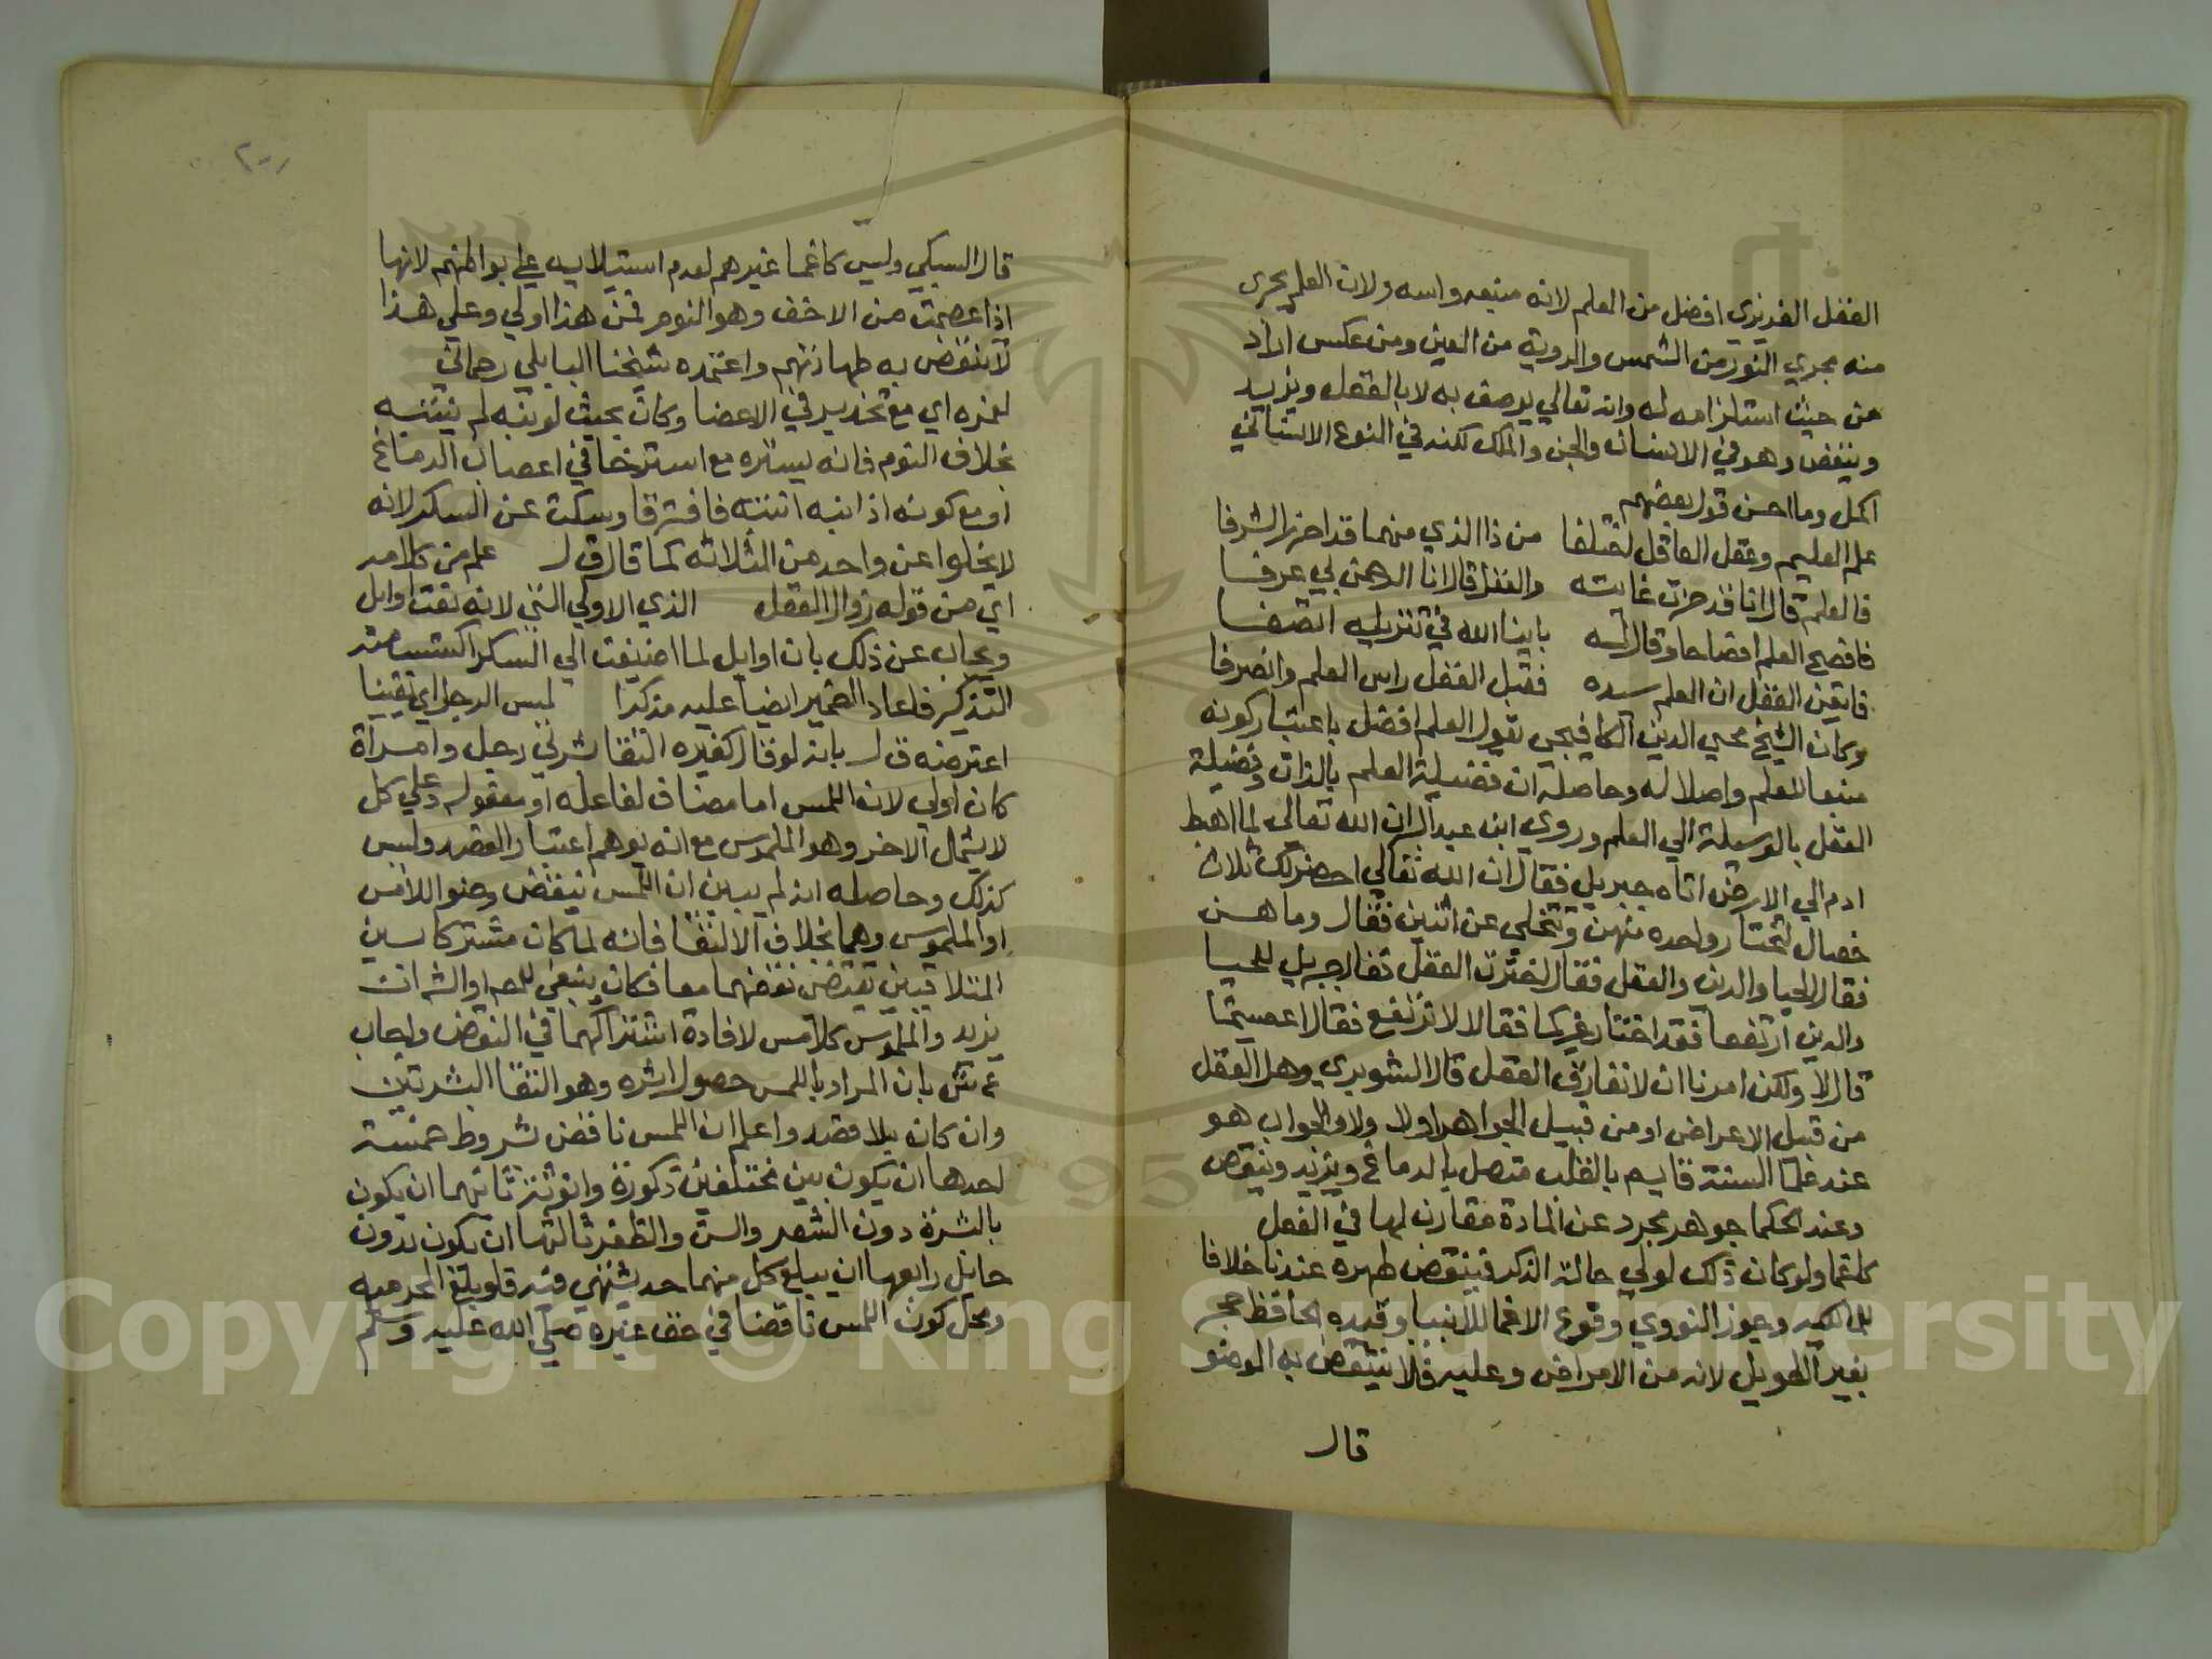 العقل الغريزي افضل من العلم لانه منبعه واسه ولان العلم يجري
منه مجري النور من الشمس والروية من العين ومن عكس اراد
من حيث استلزامه له وانه تعالي يوصف به لا بالعقل ويزيد
وينقص وهو في الانسان والجن والملك لكنه في النوع الانساني
اكمل وما احسن قول بعضهم
علم العليم وعقل العاقل اختلفا من ذا الذي منهما قد احرز الشرفا
فالعلم قال انا قد حزت غايته والعقل قال انا الرحمن بي عرفا
فافصح العلم افصاحا وقال له باينا الله في تنزيله اتصفا
فايقن العقل ان العلم سيده فقبل العقل راس العلم وانصرفا
وكان الشيخ محيي الدين الكافيجي يقول العلم افضل باعتبار كونه
منبعا للعلم واصلا له وحاصله ان فضيلة العلم بالذات وفضيلة
العقل بالوسيلة الي العلم وروي ابن عبد البر ان الله تعالي لما اهبط
ادم الي الارض اتاه جبريل فقال ان الله تعالي احضر لك ثلاث
خصال لتختار واحده منهن وتتخلي عن اثنين فقال وما هن
فقال الحيا والدين والعقل فقال اخترت العقل فقال جبريل للحيا
والدين ارتفعا فقد اختار غيركما فقالا لا نرتفع فقال اعصيتما
قالا لا ولكن امرنا ان لا نفارق العقل قال الشوبري وهل العقل
من قبيل الاعراض او من قبيل الجواهر اولا ولا والجواب هو
عند علما السنة قايم بالقلب متصل بالدماغ ويزيد وينقص
وعند الحكما جوهر مجرد عن المادة مقارن لها في الفعل
كاغما ولو كان ذلك لولي حالة الذكر فينقض طهره عندنا خلافا
للمالكيه وجوز النووي وقوع الاغما للانبيا وقيده الحافظ حجر
بغير الطويل لانه من الامراض وعليه فلا ينتقض به الوضو
قال
قال السبكي وليس كاغما غيرهم لعدم استيلايه علي بواطنهم لانها
اذا عصمت من الاخف وهو النوم فمن هذا اولي وعلي هذا
لا ينتقض به طهارتهم واعتمده شيخنا البابلي رحماني
لغيره اي مع تخدير في الاعضا وكان بحيث لو نبه لم ينتبه
بخلاف النوم فانه يستره مع استرخا في اعصاب الدماغ
او مع كونه اذا نبه انتبه فافترقا وسكت عن السكر لانه
لا يخلوا عن واحد من الثلاثه كما قال ق ل علم من كلامه
اي من قوله زوال العقل الذي الاولي التي لانه نعت اوايل
ويجاب عن ذلك بان اوايل لما اضيفت الي السكر اكتسب منه
التذكير فاعاد الضمير ايضا عليه مذكرا لمس الرجل اي يقينا
اعترضه ق ل بانه لو قال كغيره التقا بشرتي رجل وامراة
كان اولي لان اللمس اما مضاف لفاعله او مفعوله وعلي كل
لا يشمل الاخر وهو الملموس مع انه يوهم اعتبار القصد وليس
كذلك وحاصله انه لم يبين ان اللمس ينقض وضو اللامس
او الملموس وهما بخلاف الالتقا فانه لما كان مشتركا بين
المتلاقيين يقتضي نقضهما معا فكان ينبغي للمصاو الش ان
يزيد والملموس كلامس لافادة اشتراكهما في النقض واجاب
ع ش بان المراد باللمس حصول اثره وهو التقا البشرتين
وان كان بلا قصد واعلم ان اللمس ناقض بشروط خمسة
احدها ان يكون بين مختلفين ذكورة وانوثة ثانيهما ان يكون
بالبشرة دون الشعر والسن والظفر ثالثها ان يكون بدون
حايل رابعها ان يبلغ كل منهما حد يشتهي فيه قلوبلغ المحرميه
ومحل كون اللمس ناقضا في حق غيره صلي الله عليه وسلم
Copyright © King Saud University
1957